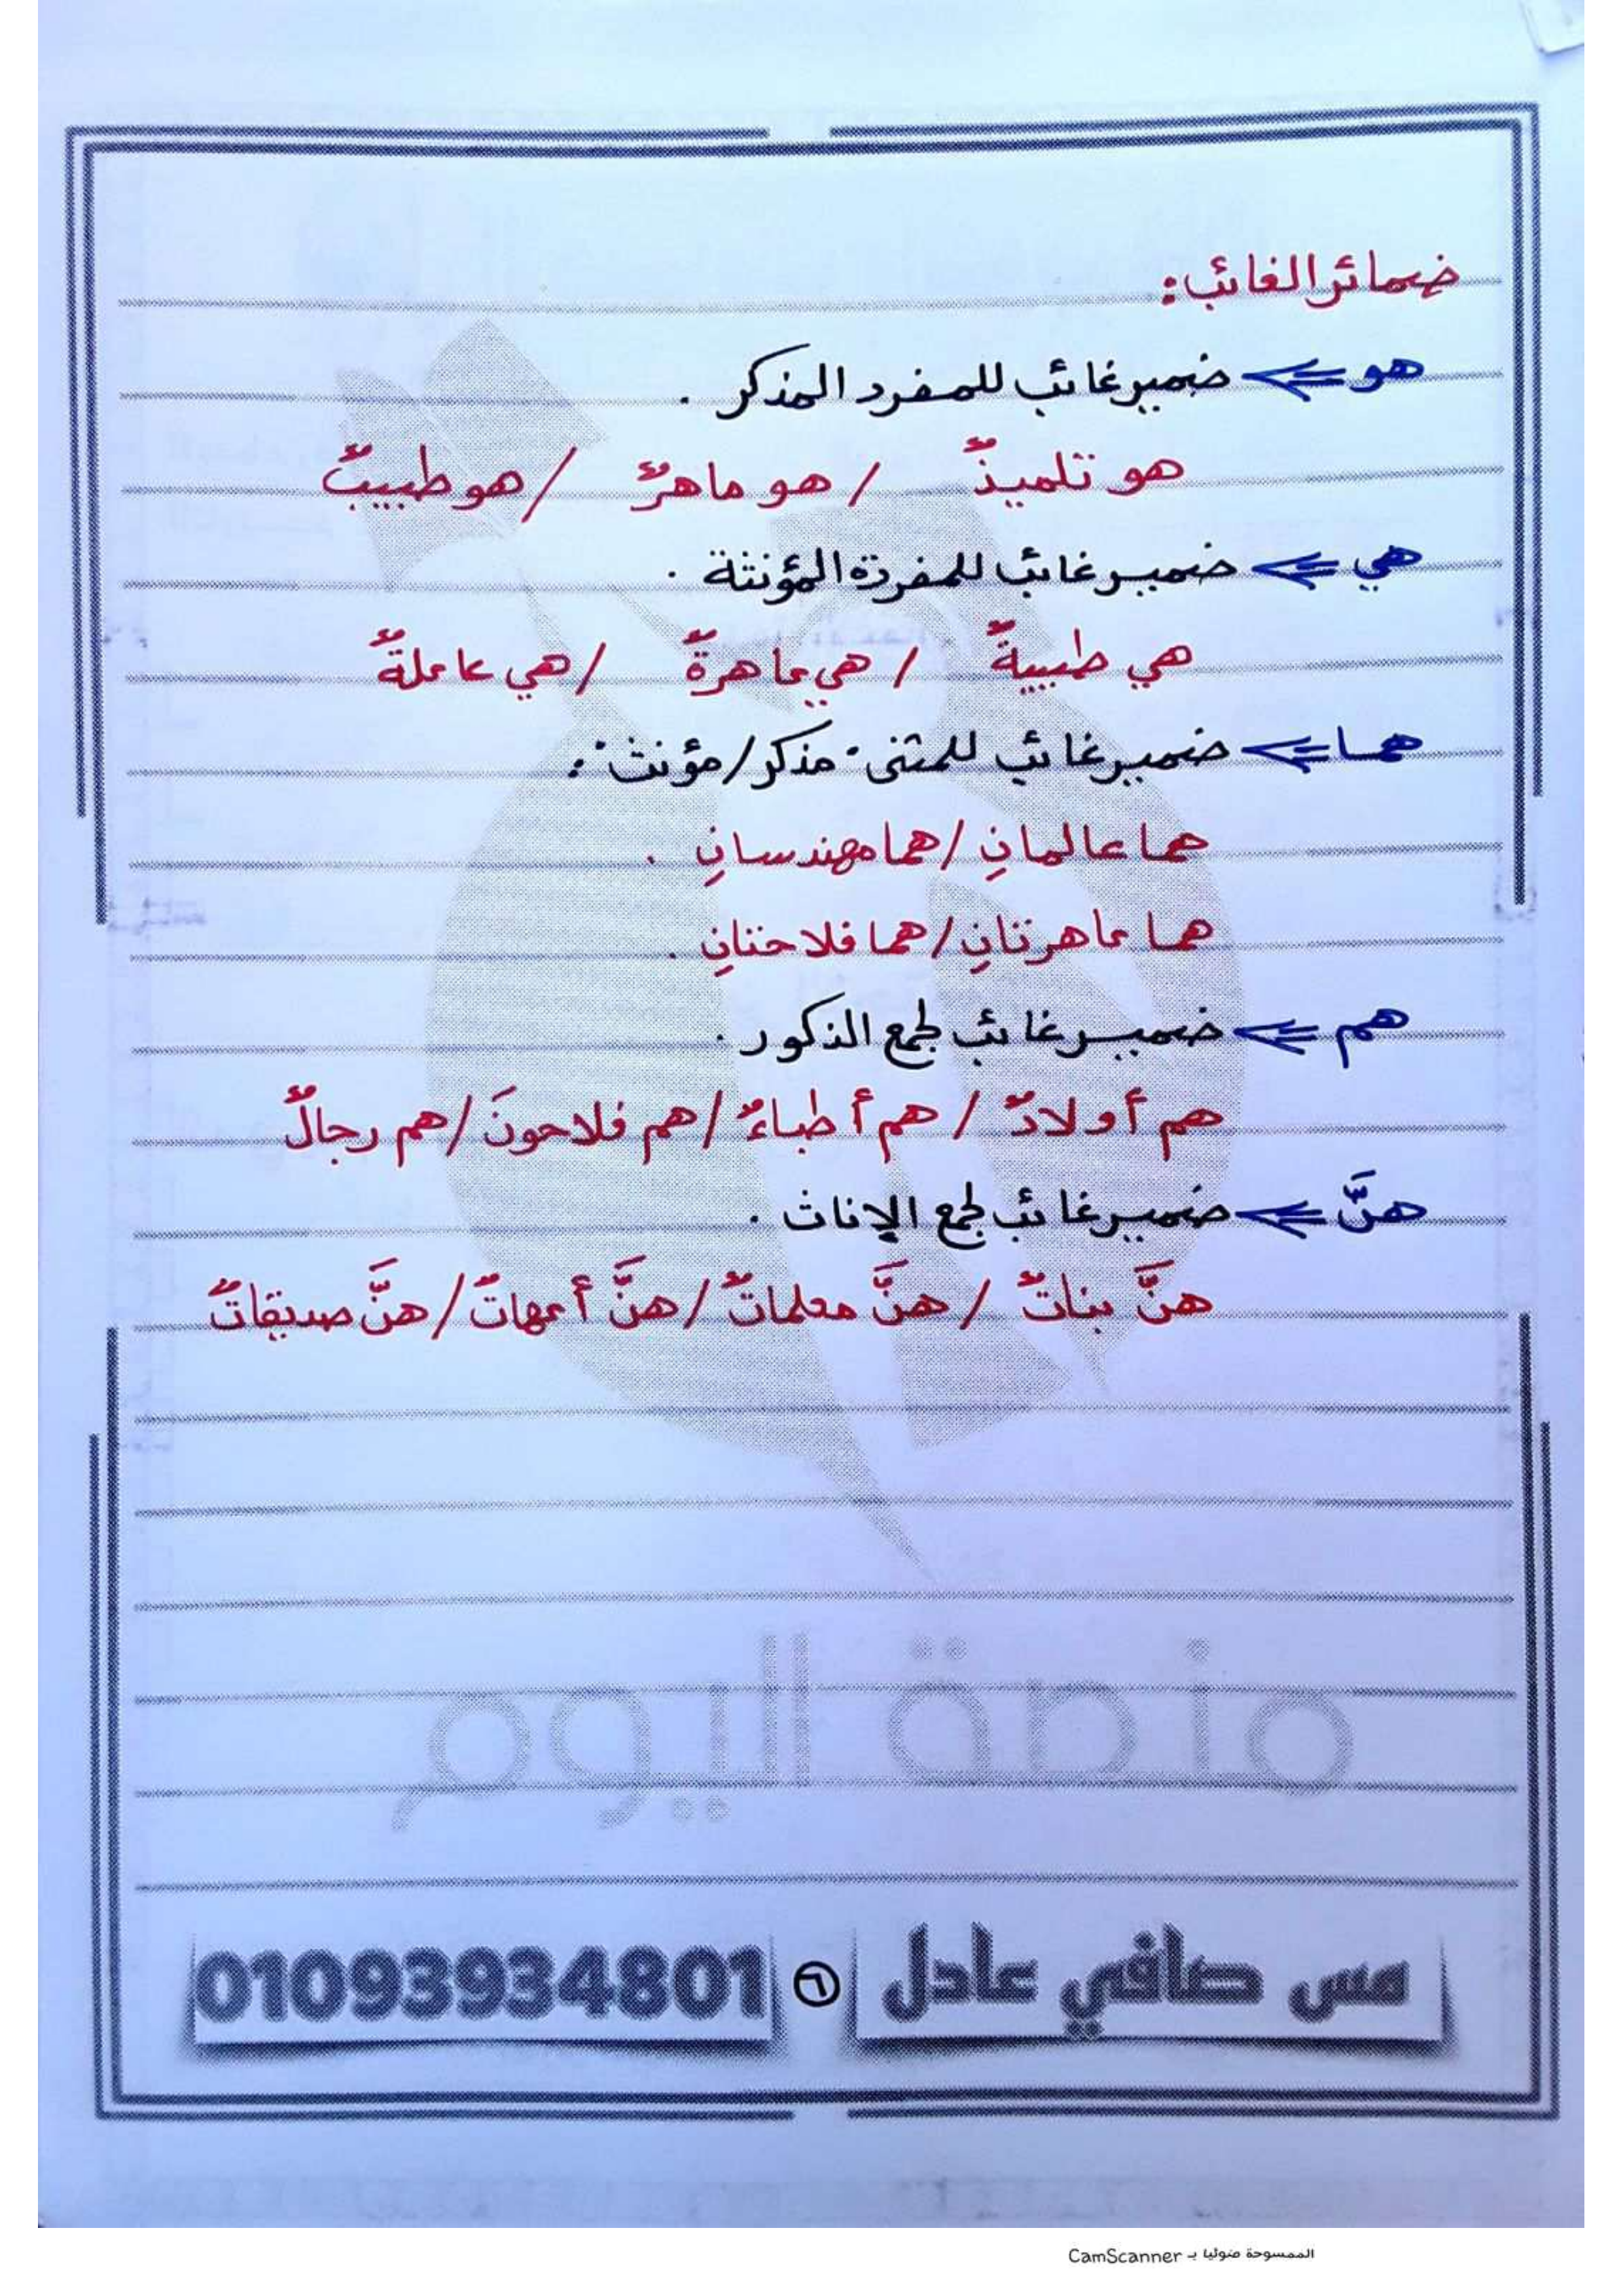 ضمائر الغائب:
هو => ضمير غائب للمفرد المذكر .
هو تلميذٌ / هو ماهرٌ / هو طبيبٌ
هي => ضمير غائب للمفردة المؤنثة .
هي طبيبةٌ / هي ماهرةٌ / هي عاملةٌ
هما => ضمير غائب للمثنى "مذكر/مؤنث":
هما عالمانِ / هما مهندسانِ .
هما ماهرتانِ / هما فلاحتانِ .
هم => ضمير غائب لجمع الذكور .
هم أولادٌ / هم أطباءٌ / هم فلاحونَ / هم رجالٌ
هنَّ => ضمير غائب لجمع الإناث .
هنَّ بناتٌ / هنَّ معلماتٌ / هنَّ أمهاتٌ / هنَّ صديقاتٌ
منصة اليوم
مس صافي عادل ٦ 01093934801
الممسوحة ضوئيا بـ CamScanner